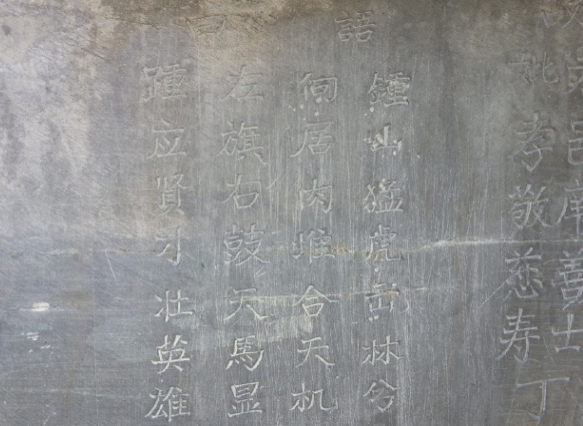 邑庠善士
孝敬慈寿丁
語
鍾山猛虎出林兮
向居内堆合天机
左旗右鼓天馬显
踵应贤才壮英雄